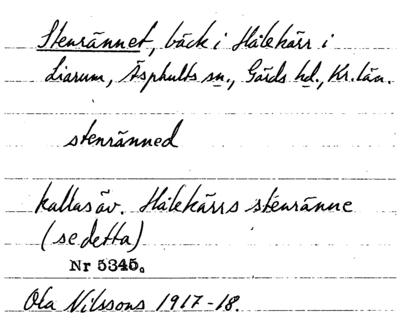 Stenrännet, bäck i Hålekärr i
Liarum, Äsphults sn., Gärds hd., Kr. län.
stenränned
kallas äv. Hålekärrs stenränne
(se detta)
Nr 5345.
Ola Nilssons 1917-18.